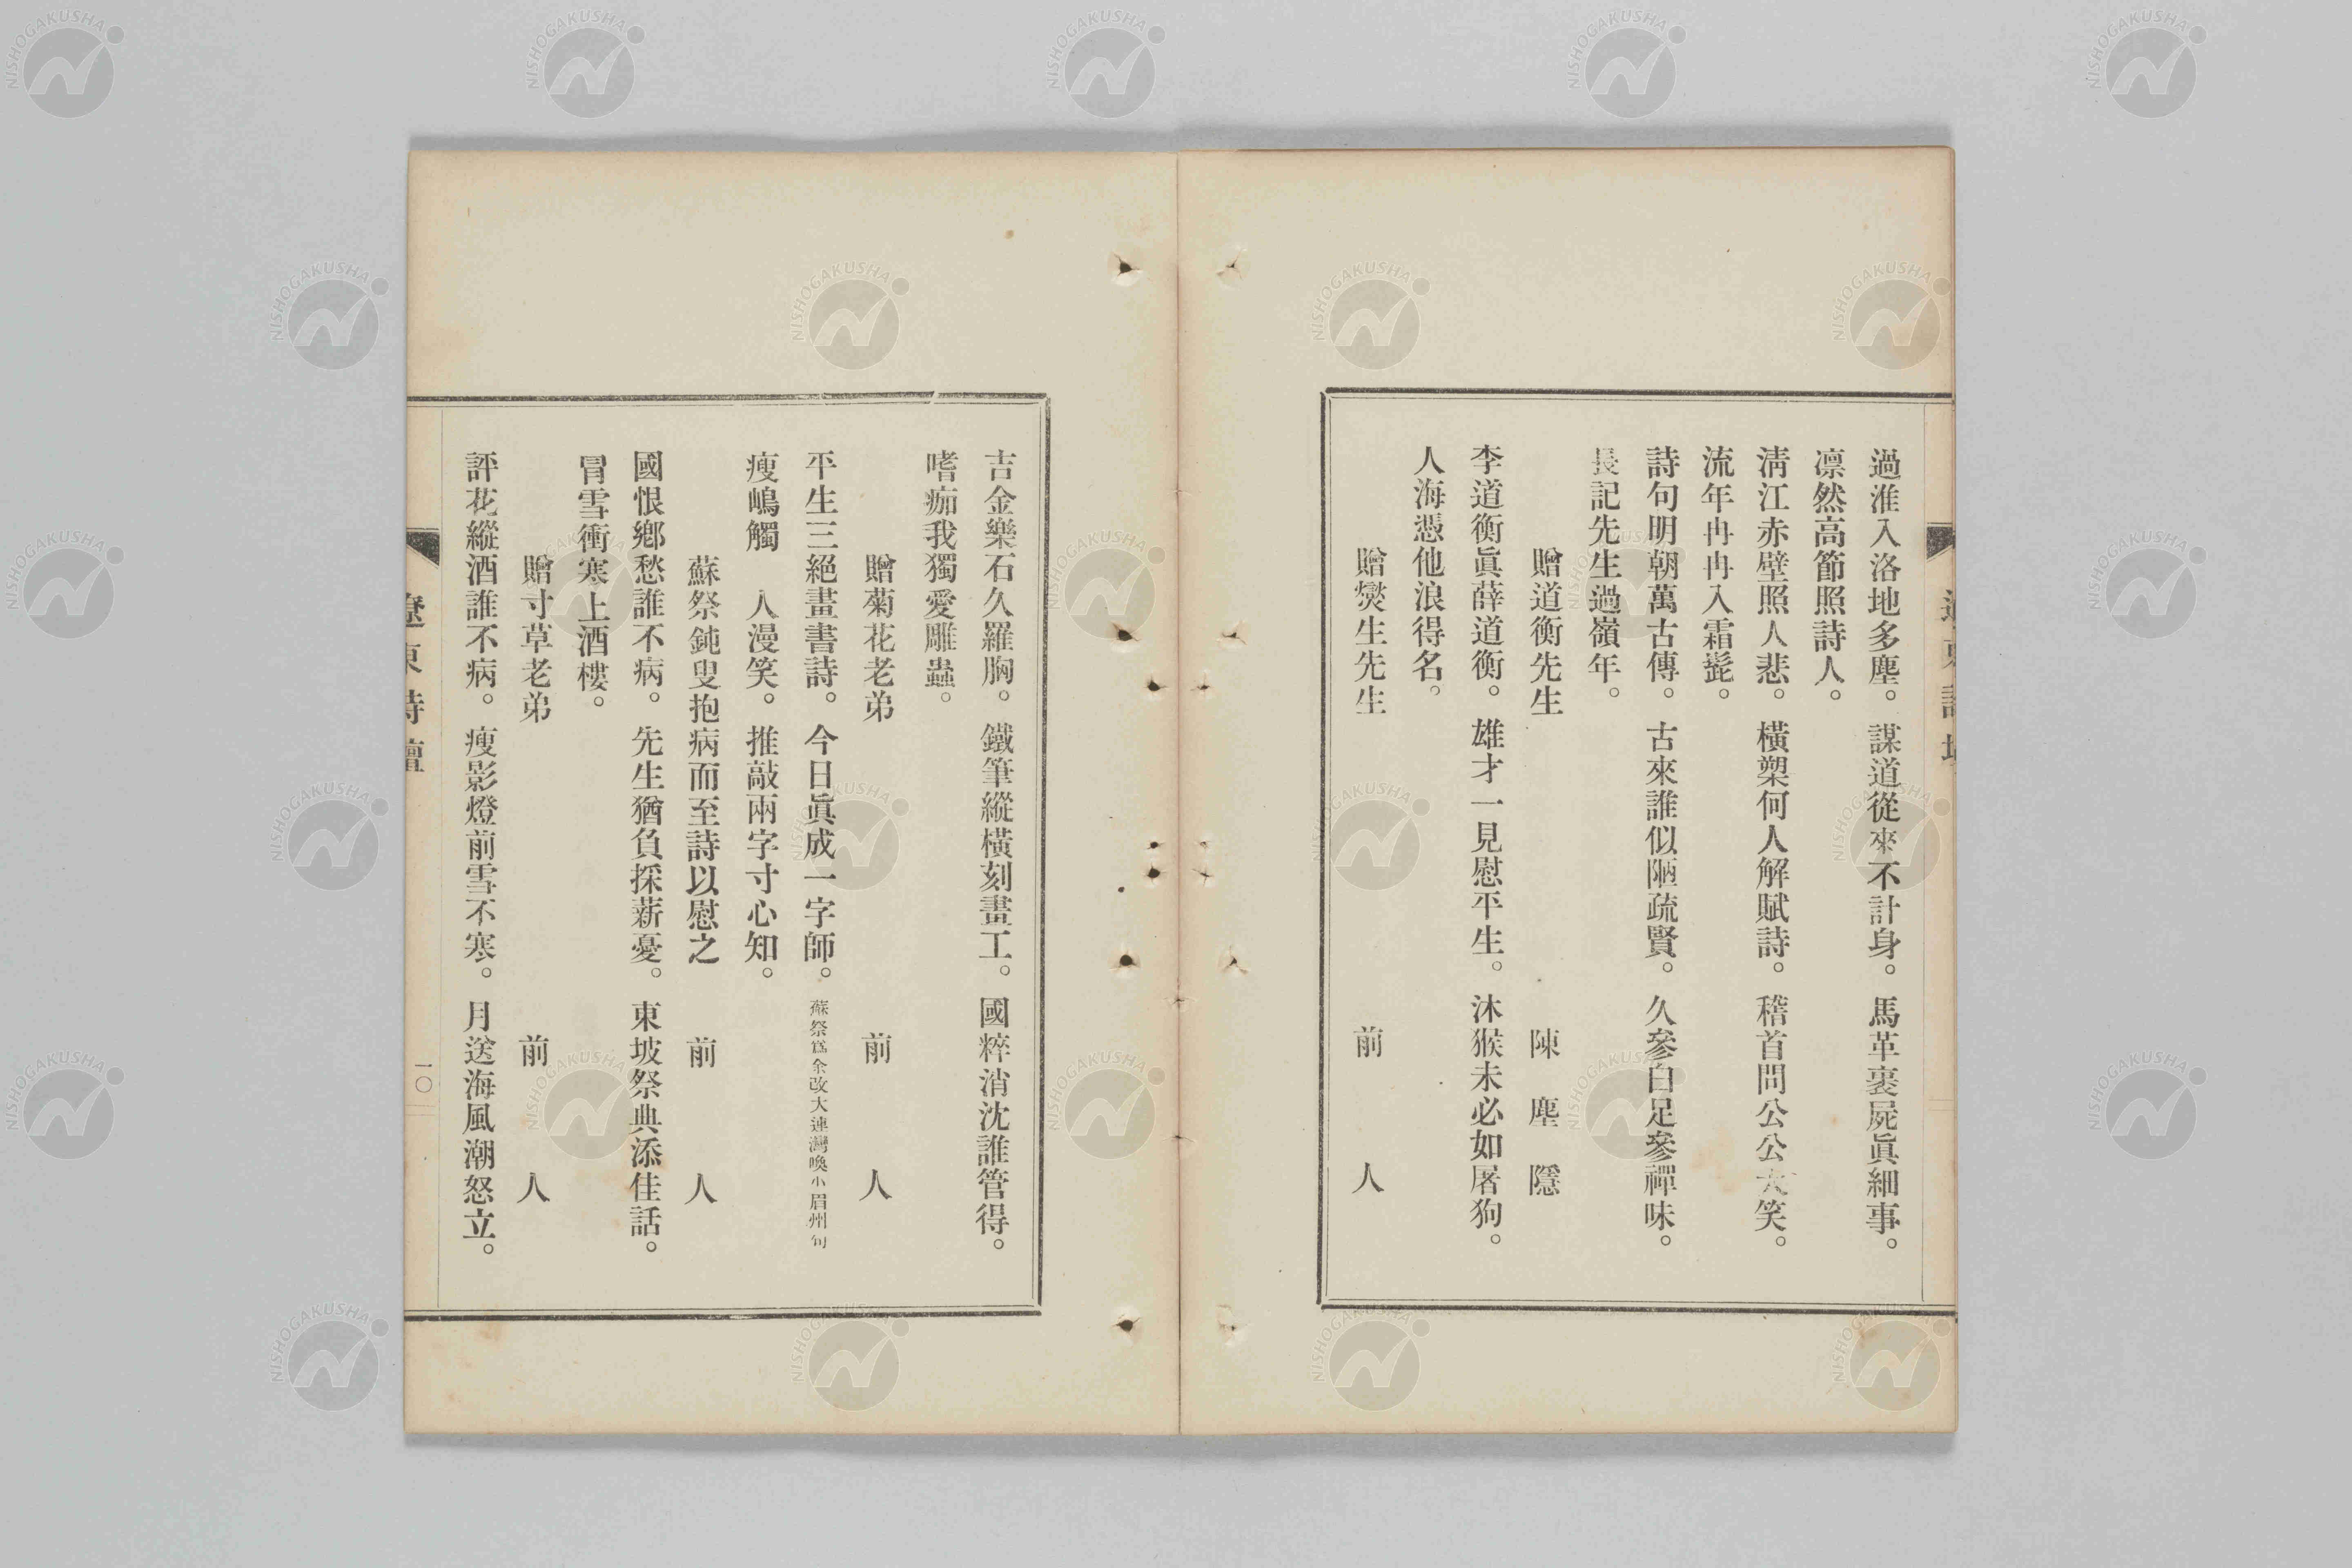 過淮入洛地多塵。謀道從來不計身。馬革裹屍眞細事。
凛然高節照詩人。
淸江赤壁照人悲。橫槊何人解賦詩。稽首問公公大笑。
流年冉冉入霜髭。
詩句明朝萬古傳。古來誰似陋疏賢。久參白足參禪味。
長記先生過嶺年。
贈道衡先生 陳塵隱
李道衡眞薛道衡。雄才一見慰平生。沐猴未必如屠狗。
人海憑他浪得名。
贈爕生先生 前人
吉金樂石久羅胸。鐵筆縱橫刻畫工。國粹消沈誰管得。
嗜痂我獨愛雕蟲。
贈菊花老弟 前人
平生三絕畫書詩。今日眞成一字師。蘇祭爲余改大連灣喚小眉州句
瘦嶋觸 人漫笑。推敲兩字寸心知。
蘇祭鈍叟抱病而至詩以慰之 前人
國恨鄕愁誰不病。先生猶負採薪憂。東坡祭典添佳話。
冒雪衝寒上酒樓。
贈寸草老弟 前人
評花縱酒誰不病。瘦影燈前雪不寒。月送海風潮怒立。
遼東詩壇
一〇
NISHOGAKUSHA